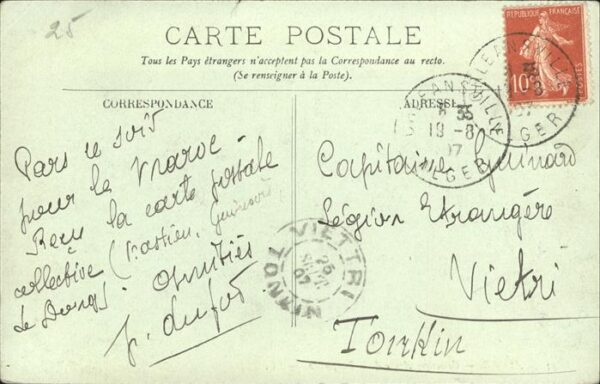 25
CARTE POSTALE
Tous les Pays étrangers n'acceptent pas la Correspondance au recto.
(Se renseigner à la Poste)
CORRESPONDANCE
ADRESSE
RÉPUBLIQUE FRANÇAISE
10
POSTES
ORLEANSVILLE
19-8
07
ALGER
ORLEANSVILLE
35
19-8
07
ALGER
Pars ce soir
pour le Maroc
Reçu la carte postale
collective
Le Bourg). Amitiés
J. Dufor
Capitaine Guinard
Légion Etrangère
Vietri
Tonkin
VIETTRI
26
07
TONKIN